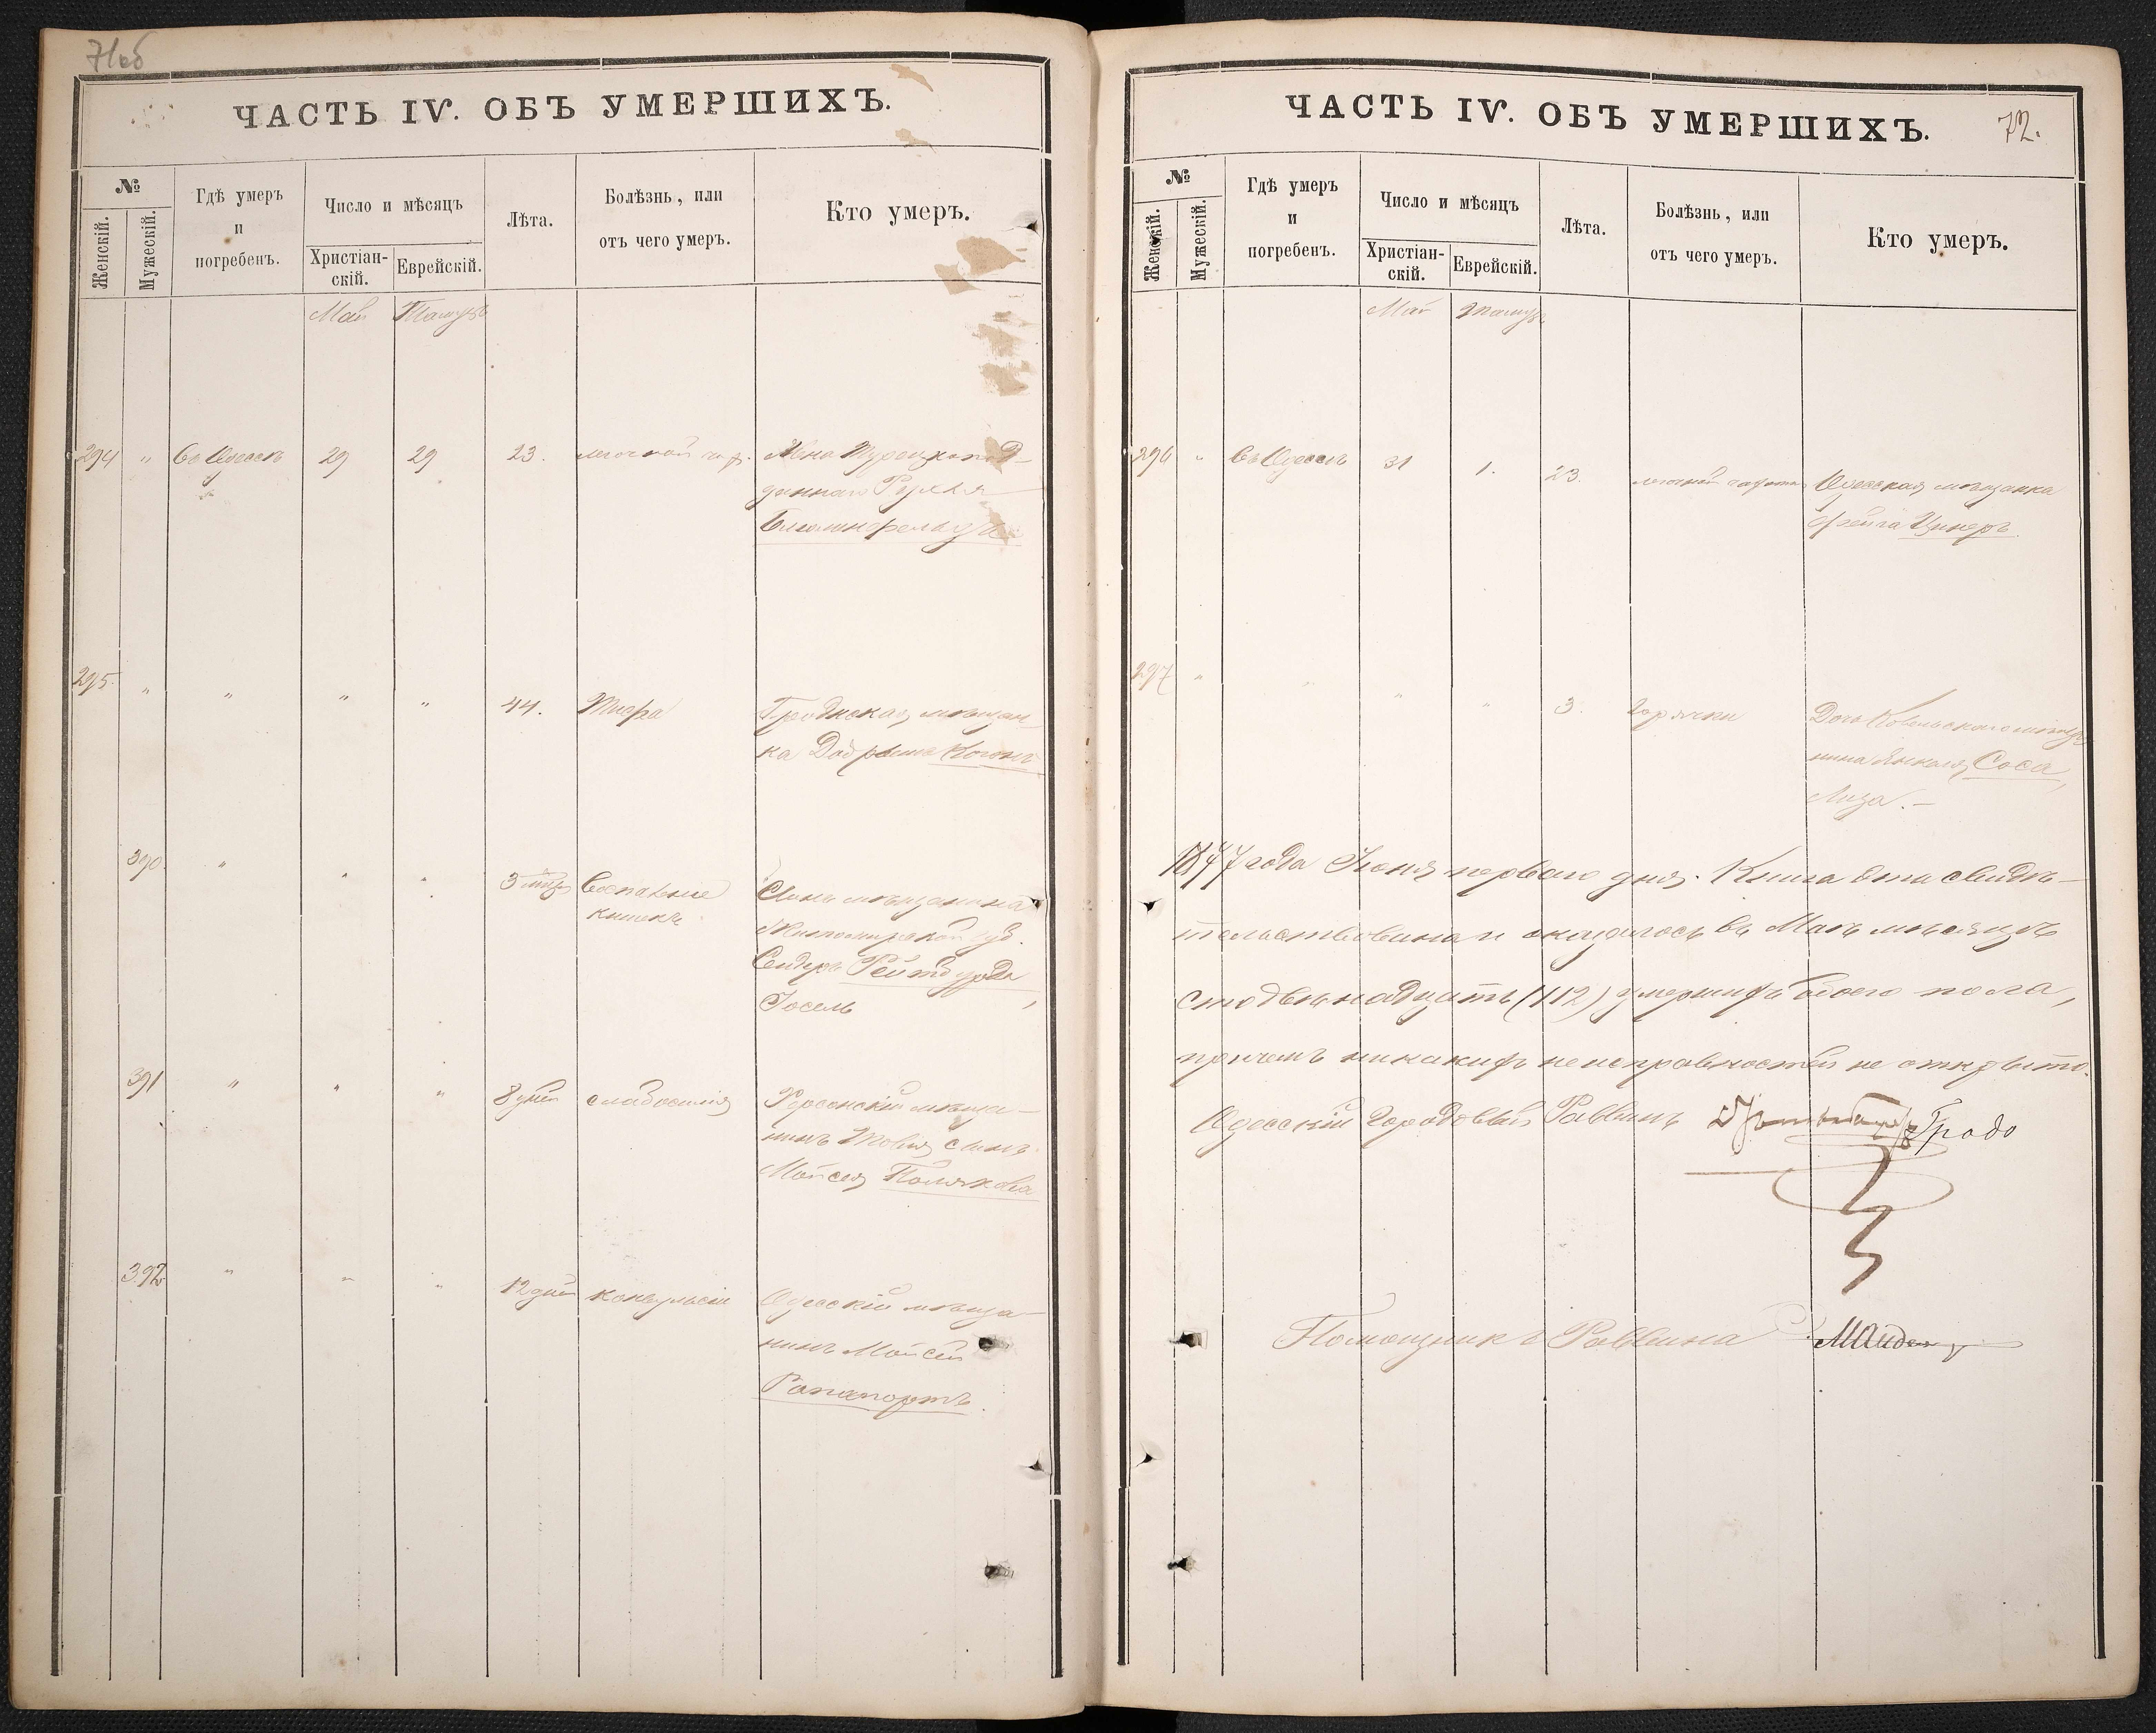 71об
ЧАСТЬ IV. ОБЪ УМЕРШИХЪ.
№
Женскій.
Мужескій.
Гдѣ умеръ
и
погребенъ.
Число и мѣсяцъ
Христіан-
скій.
Еврейскій.
Лѣта.
Болѣзнь, или
отъ чего умеръ.
Кто умеръ.
Май Тамузъ
294 " Въ Одессѣ 29 29 23. легочной Жена Турецкоп
даннаго Рухля
Блюменфельдъ
295. " " " " 44. Тифа Гроднская мѣщан-
ка Добрыш Когонъ
390. " " " 3 Воспаленіе кишекъ Сынъ мѣщанина
Житомирской губ.
Сендера
Іосель
391 " " " 8 дней слабосилія Херсонскій мѣща-
нинъ Товія сынъ
Мойсея Полякова
392 " " " 12 дней конвульсіи Одесскій мѣща-
нинъ Мойсей
Рапапортъ.
ЧАСТЬ IV. ОБЪ УМЕРШИХЪ.
72.
№
Женскій.
Мужескій.
Гдѣ умеръ
и
погребенъ.
Число и мѣсяцъ
Христіан-
скій.
Еврейскій.
Лѣта.
Болѣзнь, или
отъ чего умеръ.
Кто умеръ.
Май Тамузъ
296 " Въ Одессѣ 31 1. 23. легочной Одесская мѣщанка
Фейга Цинеръ
297 " " " " 3. горячки Дочь Ковельскаго мѣща
нина Янкеля Соса,
Лиза.—
1877 года Іюня перваго дня. Книга эта свидѣ-
тельствована и оказалось въ Маѣ мѣсяцѣ
стодвѣнадцать (112) умершихъ обоего пола,
причемъ никакихъ неисправностей не открыто.
Одесскій Городовый Раввинъ
Помощникъ Раввина